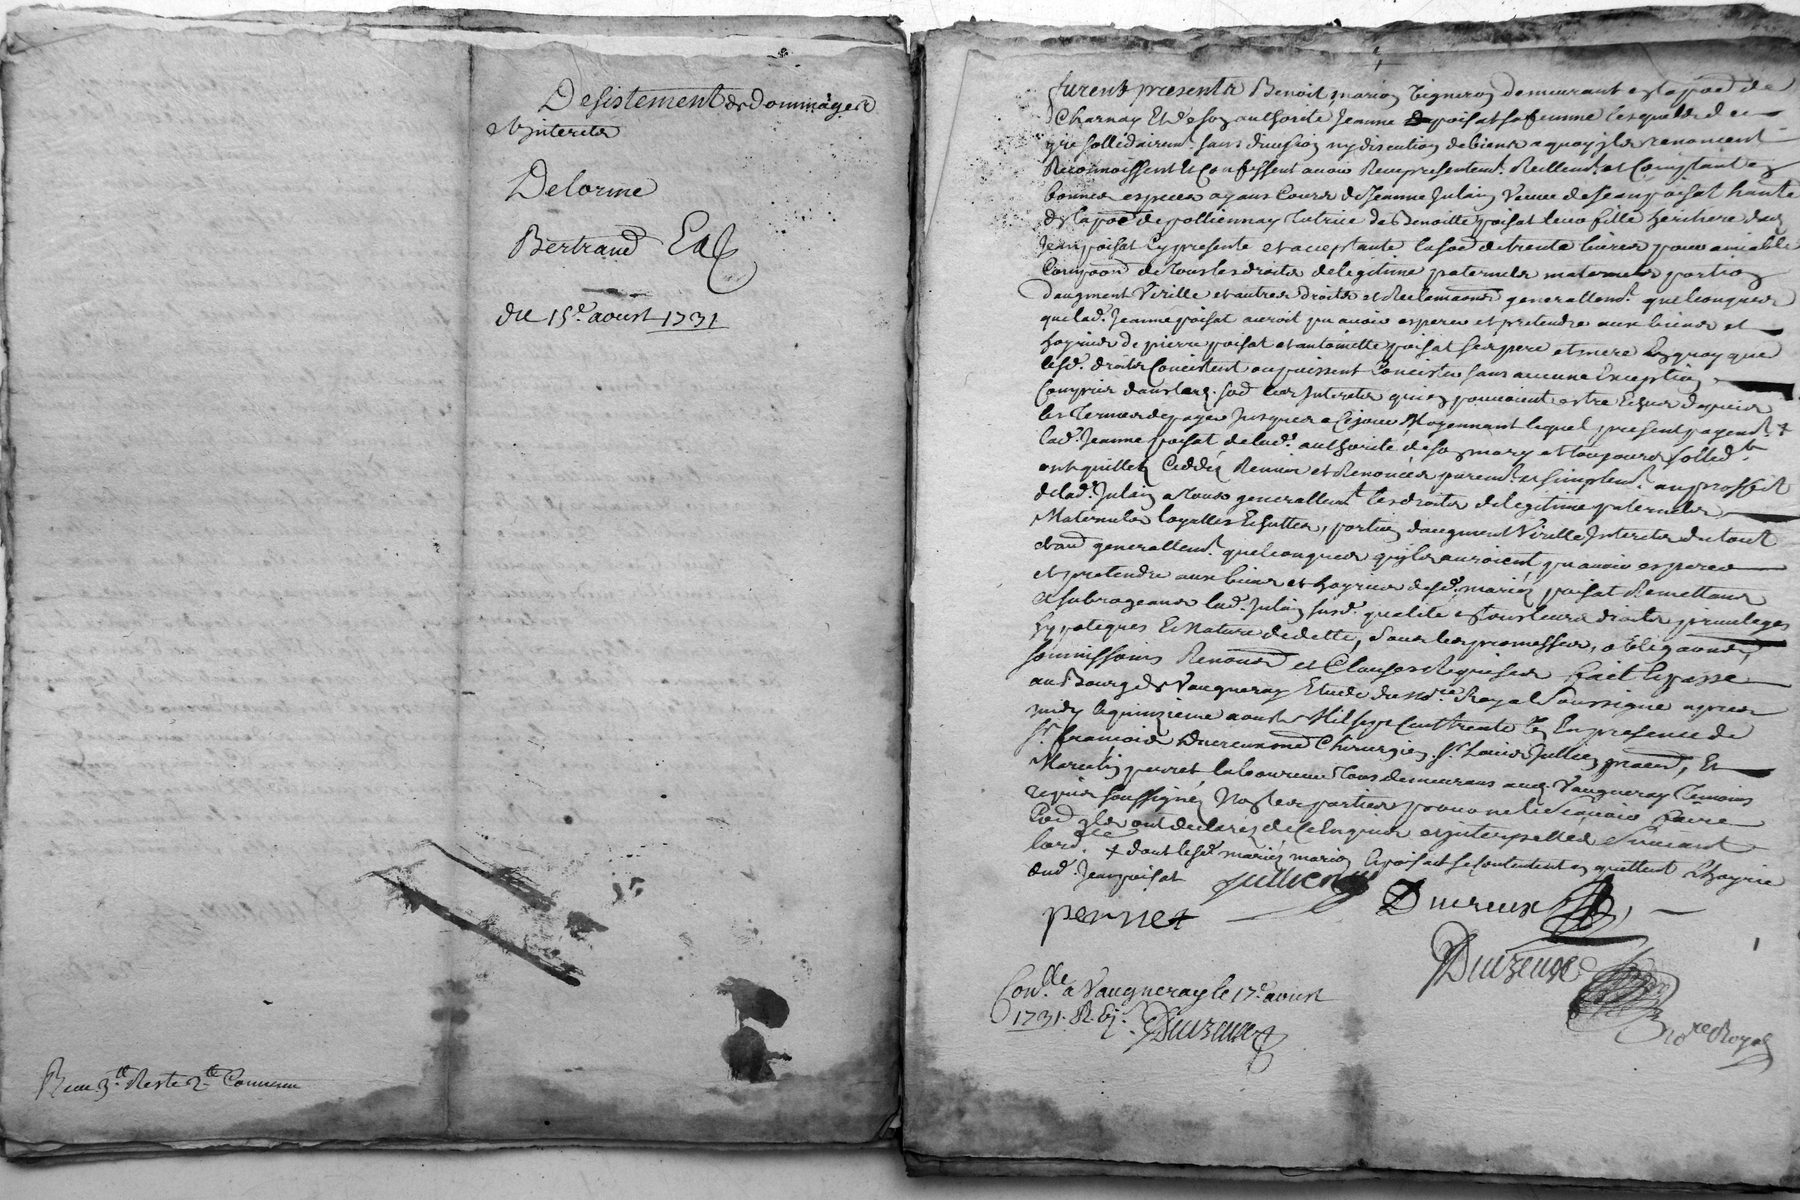 Desistement de dommages
et interets
Delorme
Bertrand
du 15e. aoust 1731
Receu 3.tt Reste 2.tt
furent presents Benoit marion vigneron demeurant en la pssе de
Charnay Et de son authorité Jeanne poisat sa femme lesquels de
gré sollidairemt. sans division ny discution de biens a quoy ils renoncent
Reconnoissent et Confessent avoir Receu presentemt. Reellemt. et Comptant en
bonnes especes ayans Cours de Jeanne Julain Veuve de Jean poisat
de la psse de pollionnay tutrice de Benoitte poisat leur fille heritiere dud.
Jean poisat Cy presente et acceptante la so de trente livres pour amiable
de tous les droits de legitime paternels maternels portion
daugment Virille et autres droits et Reclamaons generallemt. quelconques
que lad. Jeanne poisat auroit pu avoir esperer et pretendre aux biens et
hoyries de pierre poisat et antoinette poisat ses pere et mere En quoy que
lesd. droits Concistent ou puissent Concister sans aucune Exception
Compris dans lad. les Interets qui en pouvoient estre Echus depuis
les Termes de payer jusques a Ce jour Moyennant lequel present payemt. +
lad. Jeanne poisat de lad. authorité de son mary et toujours sollidt.
ont quitté Ceddé Remis et Renoncés puremt. et simplemt. au proffit
de lad. Julain a tous generallemt. les droits de legitime paternels
Maternels portion daugment Virille Interets du tout
generallemt. quelconques qu'ils auroient pu avoir esperer
et pretendre aux biens et hoyries desd. mariés poisat Remettans
et subrogeans lad. Julain susd. qualité en tous leurs droits privileges
hypoteques Et Nature de dette, sous les promesses, obligaons,
soumissions Renonons et Clauses Requises fait et passé
au Bourg de Vaugneray Etude du Nore. Royal soussigné apres
midy le quinzieme aoust Mil sept Cent trente Un En presence de
Sr. francois Ducreux md Chirurgien, Sr. Louis Jullien praen, Et
perret laboureur tous demeurans aud. Vaugneray temoins
requis soussignés Non les parties pour ne le sçavoir faire
ils ont declarez de Ce Enquis et interpellés suivant
lord.ce + dont lesd. mariés marion et poisat se contentent en quittent l'hoyrie
dud. Jean poisat
Jullien
perret
Ducreux
Duizeux
Conlle. a Vaugneray le 17e. aoust
1731. R.
Duizeux
nore Royal